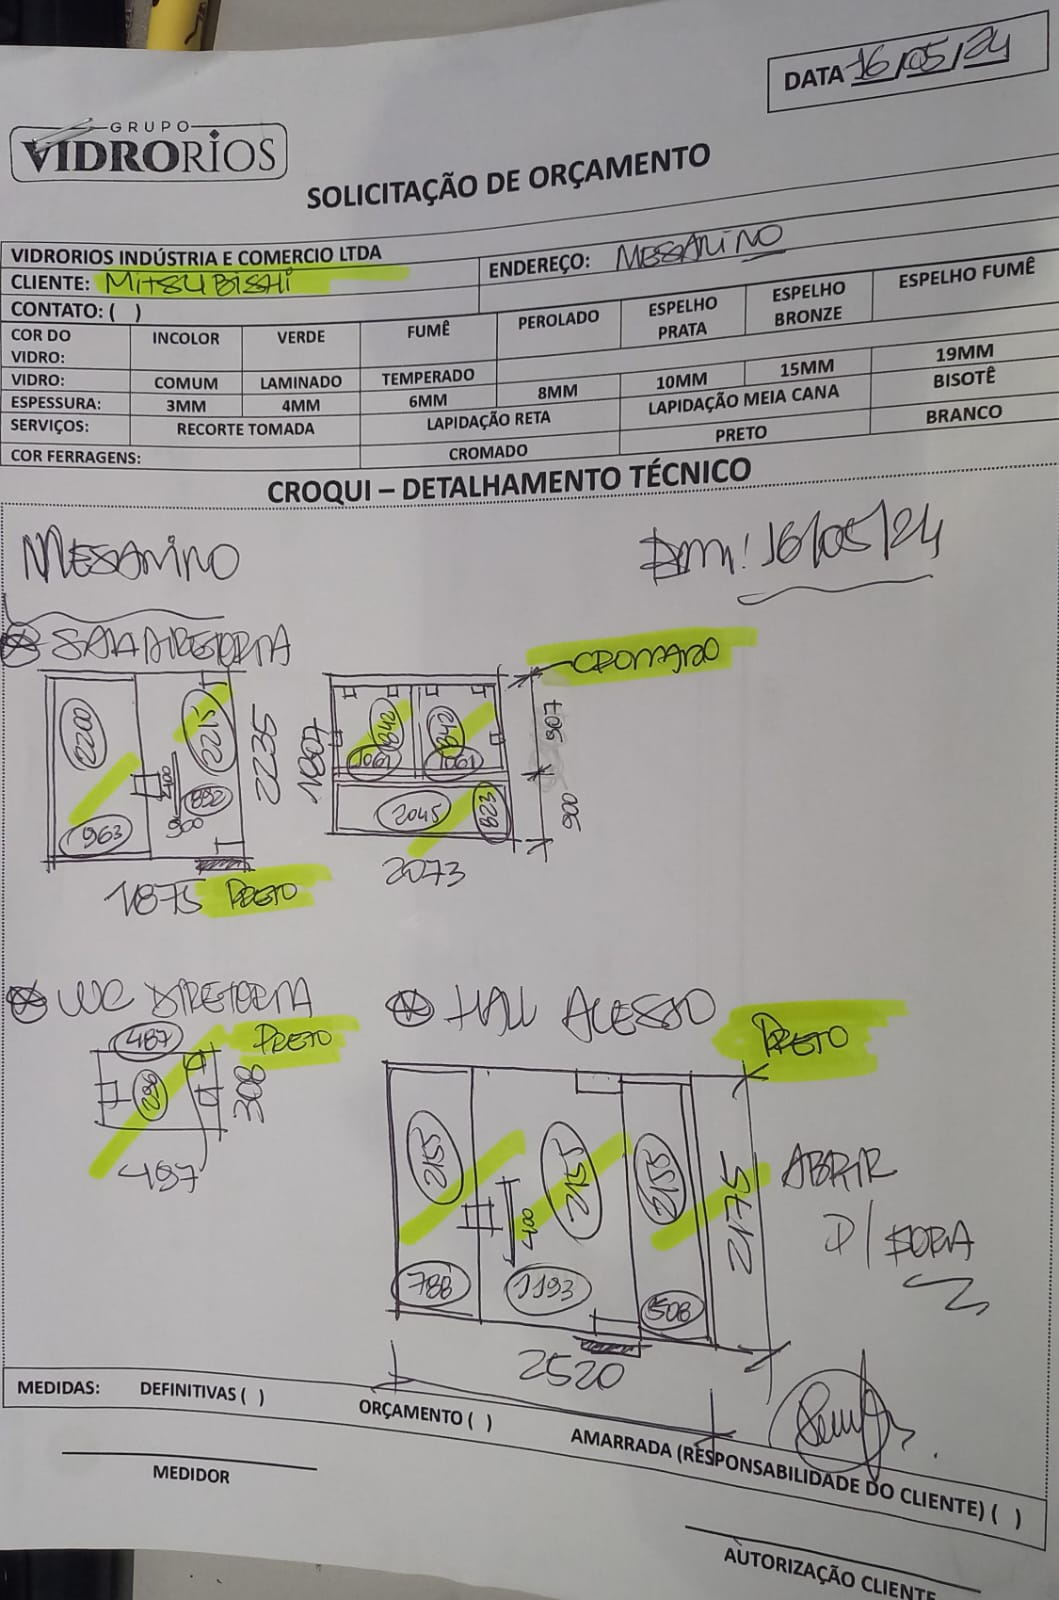 DATA 16/05/24
GRUPO
VIDRORIOS
SOLICITAÇÃO DE ORÇAMENTO
VIDRORIOS INDÚSTRIA E COMERCIO LTDA
CLIENTE: MITSUBISHI
ENDEREÇO: MESANINO
CONTATO: ( )
COR DO VIDRO: INCOLOR VERDE FUMÊ PEROLADO ESPELHO PRATA ESPELHO BRONZE ESPELHO FUMÊ
VIDRO: COMUM LAMINADO TEMPERADO
ESPESSURA: 3MM 4MM 6MM 8MM 10MM 15MM 19MM
SERVIÇOS: RECORTE TOMADA LAPIDAÇÃO RETA LAPIDAÇÃO MEIA CANA BISOTÊ
COR FERRAGENS: CROMADO PRETO BRANCO
CROQUI – DETALHAMENTO TÉCNICO
MESANINO
16/05/24
SALA DIRETORIA
CROMADO
2200
2215
2235
400
892
900
963
1875 PRETO
1007
1061
1061
907
900
2045
823
2073
WC DIRETORIA
PRETO
487
296
308
497
HALL ACESSO
PRETO
2155
2155
2155
2175
400
788
1193
508
2520
ABRIR
P/ FORA
MEDIDAS: DEFINITIVAS ( ) ORÇAMENTO ( ) AMARRADA (RESPONSABILIDADE DO CLIENTE) ( )
MEDIDOR
AUTORIZAÇÃO CLIENTE